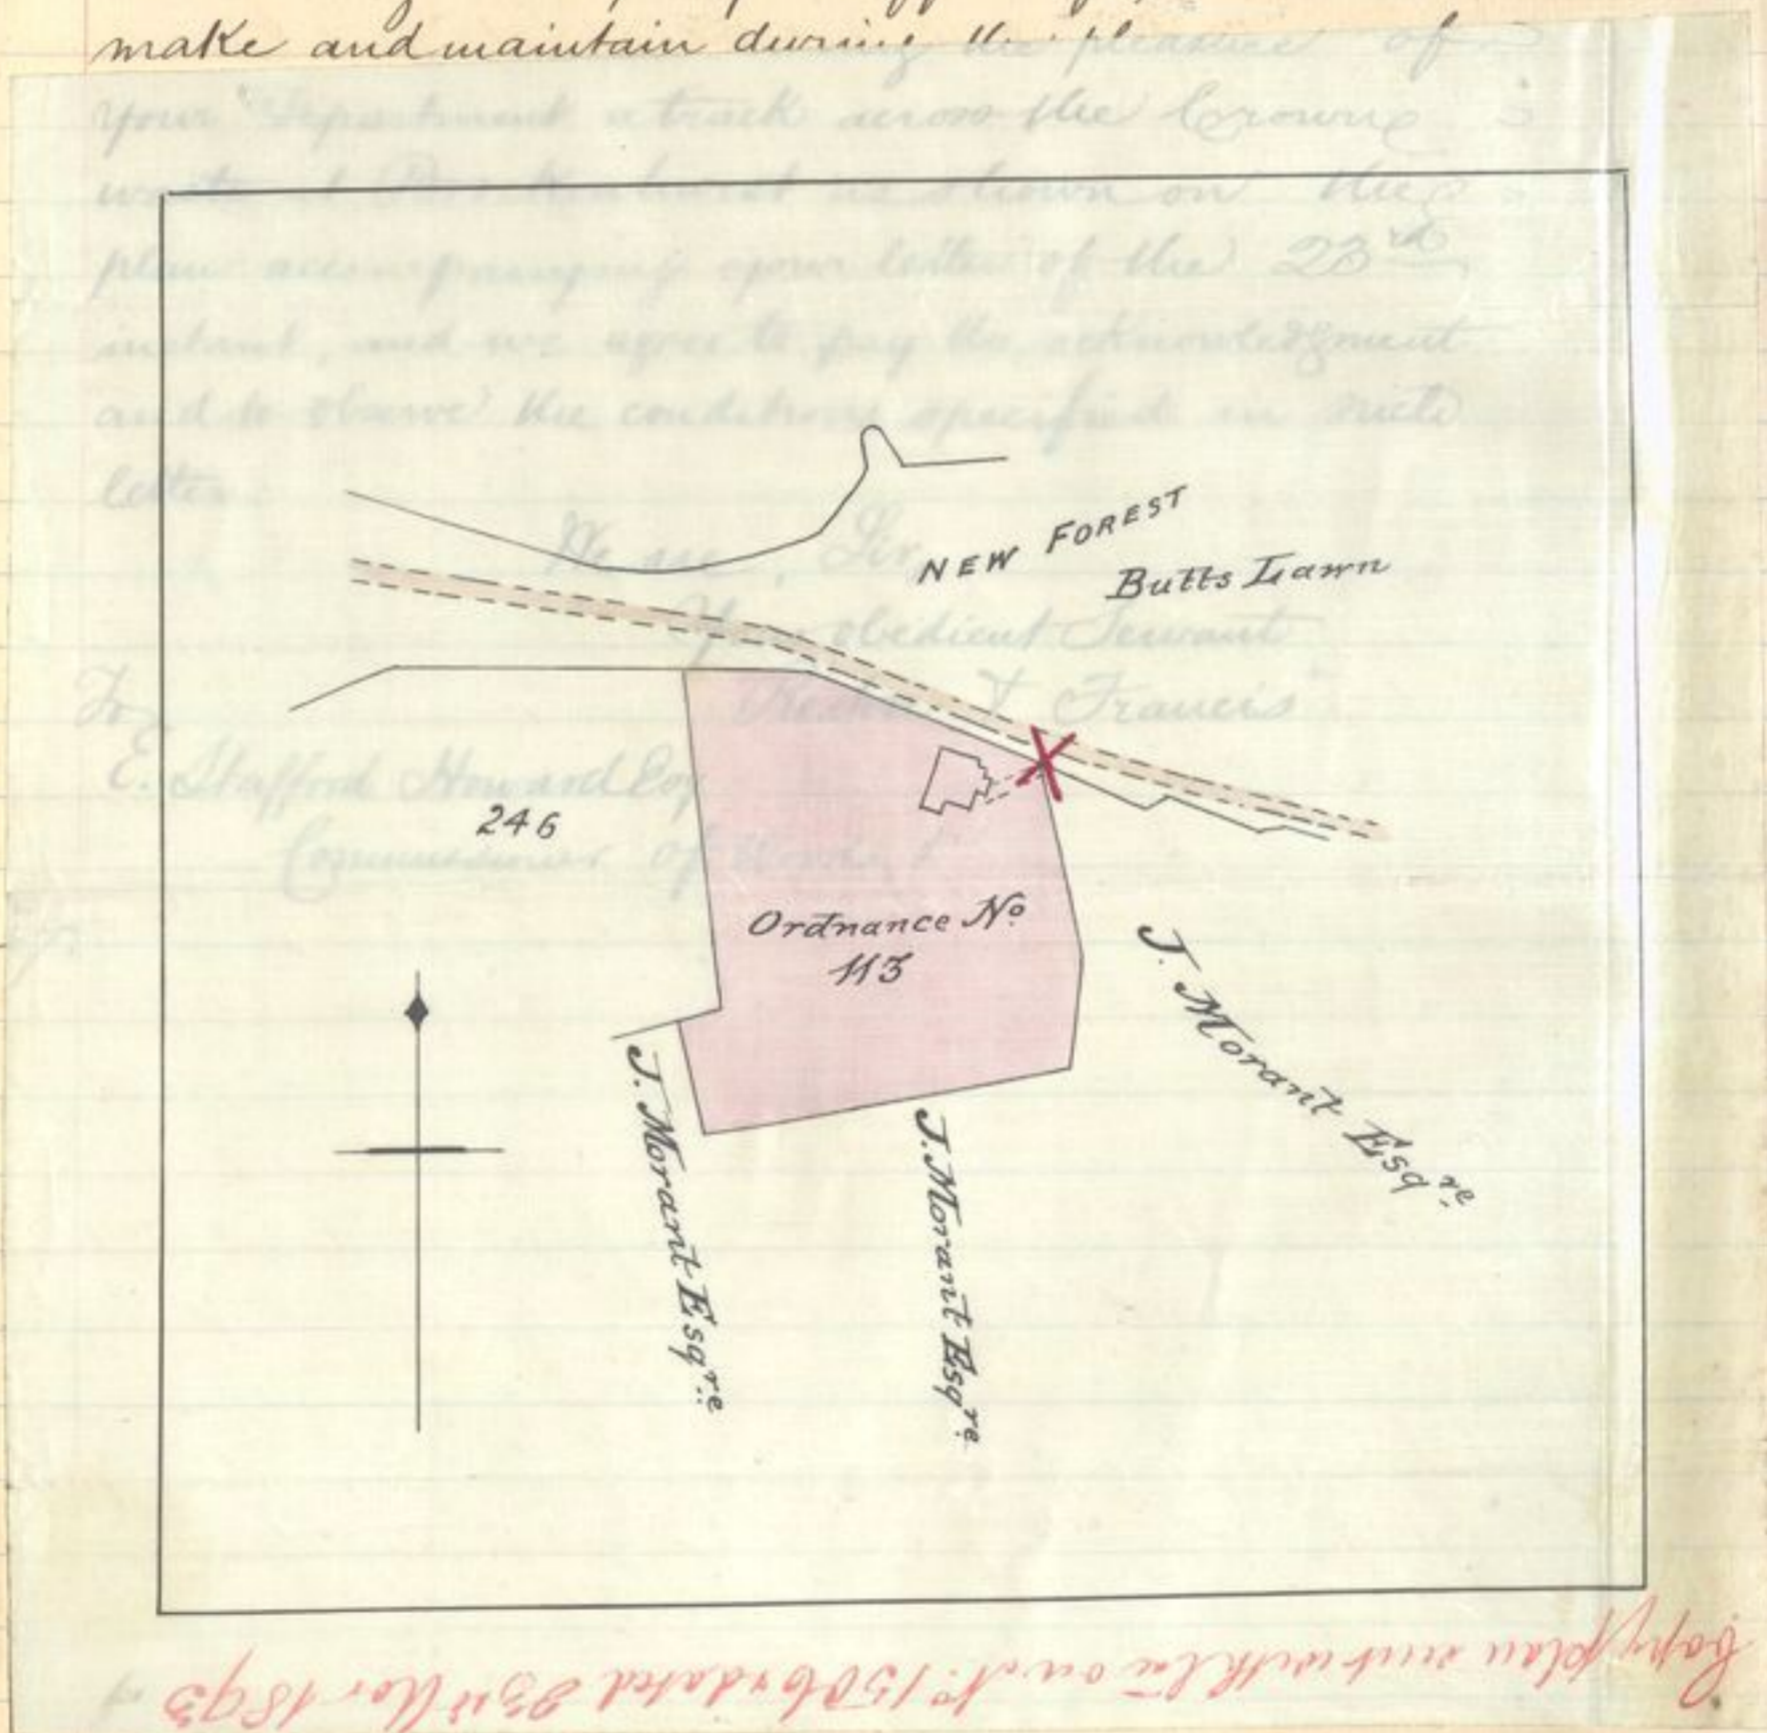 make and maintain during the pleasure of
your Department a track across the Crown
waste at Brockenhurst as shown on the
plan accompanying your letter of the 23rd
instant, and we agree to pay the acknowledgment
and to observe the conditions specified in said
letter.
We are, Sir
Your obedient Servant
& Francis
To
E. Stafford Howard Esq
Commissioner of Woods &c
NEW FOREST
Butts Lawn
246
Ordnance No.
113
J. Morant Esqre.
J. Morant Esqre.
J. Morant Esqre.
Copy plan sent with dated 23rd Mar 1893